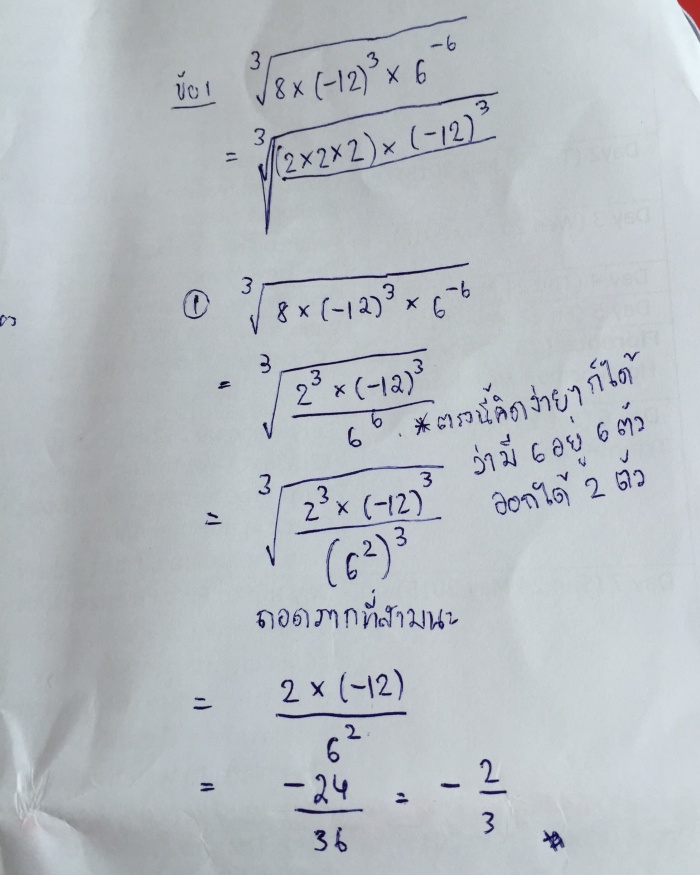 ข้อ 1 ∛(8 × (-12)³ × 6⁻⁶)
= ∛((2×2×2) × (-12)³)
① ∛(8 × (-12)³ × 6⁻⁶)
= ∛((2³ × (-12)³)/6⁶) . * ตรงนี้คิดง่ายๆ ก็ได้
ว่ามี 6 อยู่ 6 ตัว
ออกได้ 2 ตัว
= ∛((2³ × (-12)³)/(6²)³)
ถอดรากที่สามนะ
= (2 × (-12))/6²
= -24/36 = -2/3 *